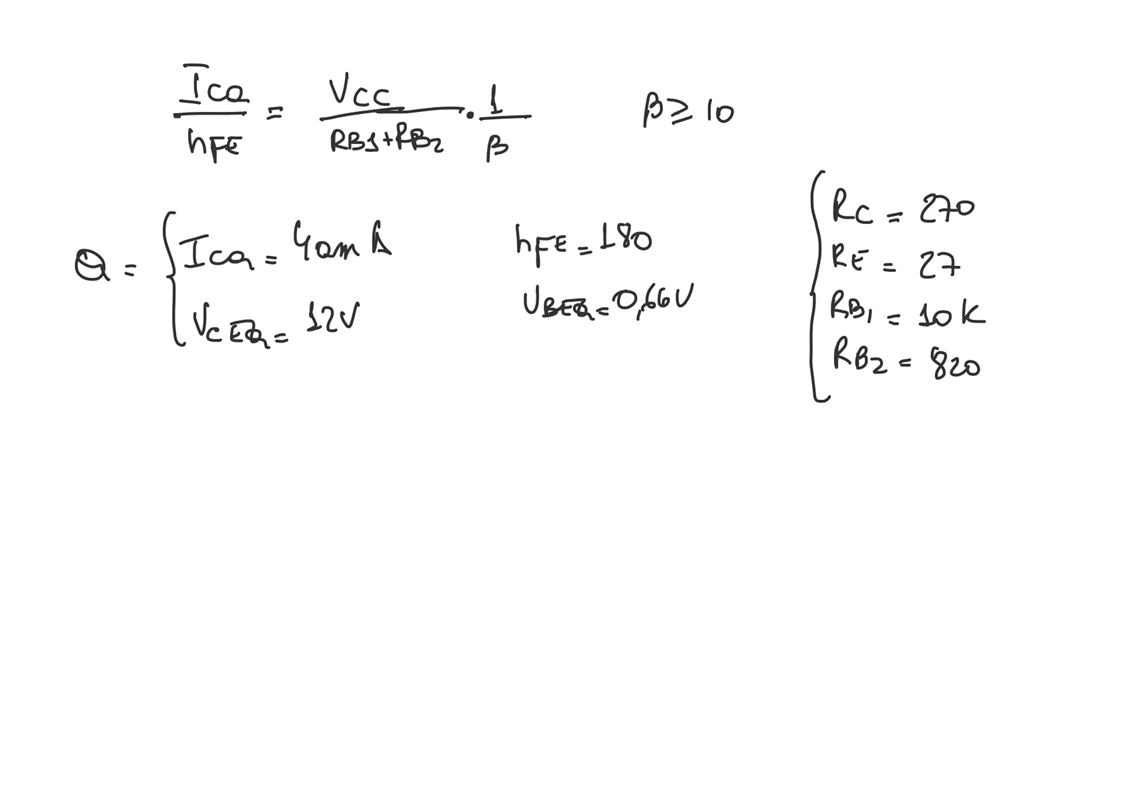 ICQ / hFE = VCC / RB1+RB2 · 1 / β     β ≥ 10
Q = { ICQ = 40mA     hFE = 180
VCEQ = 12V     VBEQ = 0,66V
{ RC = 270
RE = 27
RB1 = 10K
RB2 = 820